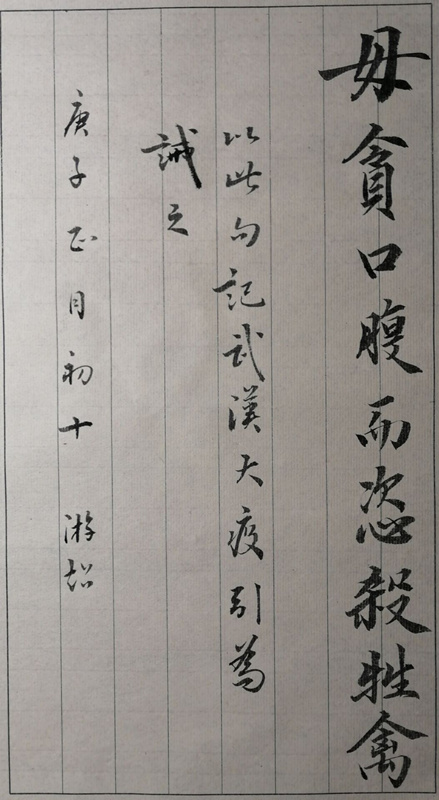 毋貪口腹而恣殺牲禽
以此句記武漢大疫引為
誡之
庚子正月初十 游韶